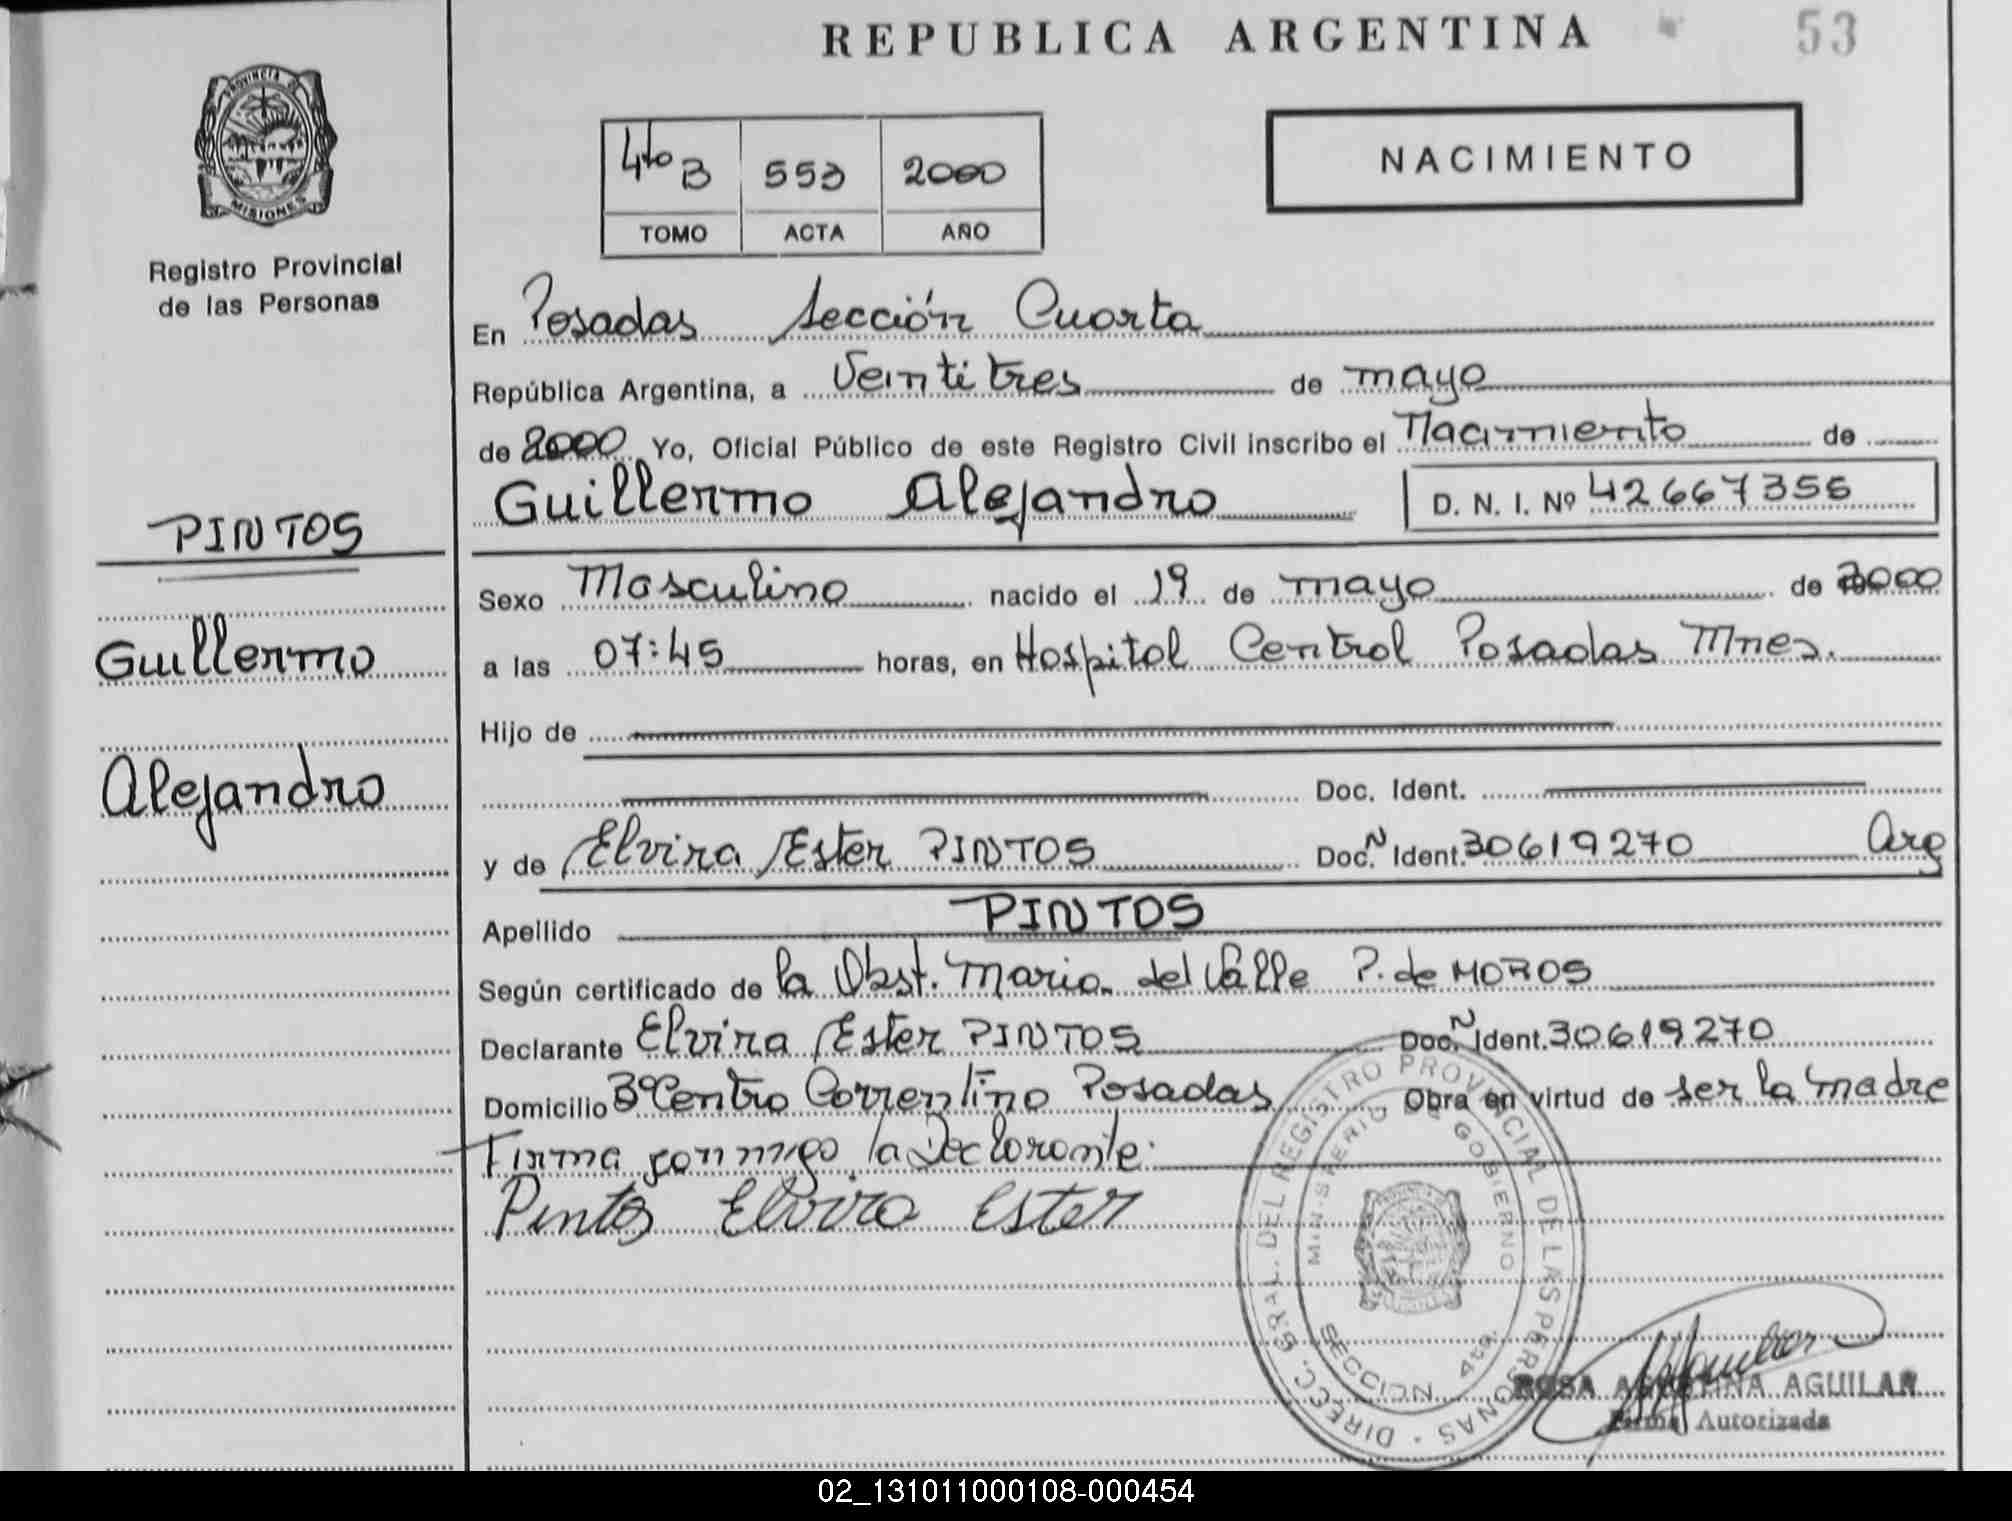 REPUBLICA ARGENTINA
53
PROVINCIA DE
MISIONES
Registro Provincial
de las Personas
4to B 553 2000
TOMO ACTA AÑO
NACIMIENTO
En Posadas Sección Cuarta
República Argentina, a Veintitres de mayo
de 2000 Yo, Oficial Público de este Registro Civil inscribo el Nacimiento de
Guillermo Alejandro D. N. I. Nº 42667355
PINTOS
Guillermo
Alejandro
Sexo Masculino nacido el 19 de mayo de 2000
a las 07:45 horas, en Hospital Central Posadas Mnes.
Hijo de
Doc. Ident.
y de Elvira Ester PINTOS Doc. N Ident. 30619270 Arg
Apellido PINTOS
Según certificado de la Obst. Maria del Valle P. de MOROS
Declarante Elvira Ester PINTOS Doc. N Ident. 30619270
Domicilio Bº Centro Correntino Posadas Obra en virtud de ser la madre
Firma conmigo la Declarante.
Pintos Elvira Ester
DIRECC. GRAL. DEL REGISTRO PROVINCIAL DE LAS PERSONAS
MINISTERIO DE GOBIERNO
SECCION 4ta.
ROSA AGUILAR
Firma Autorizada
02_131011000108-000454